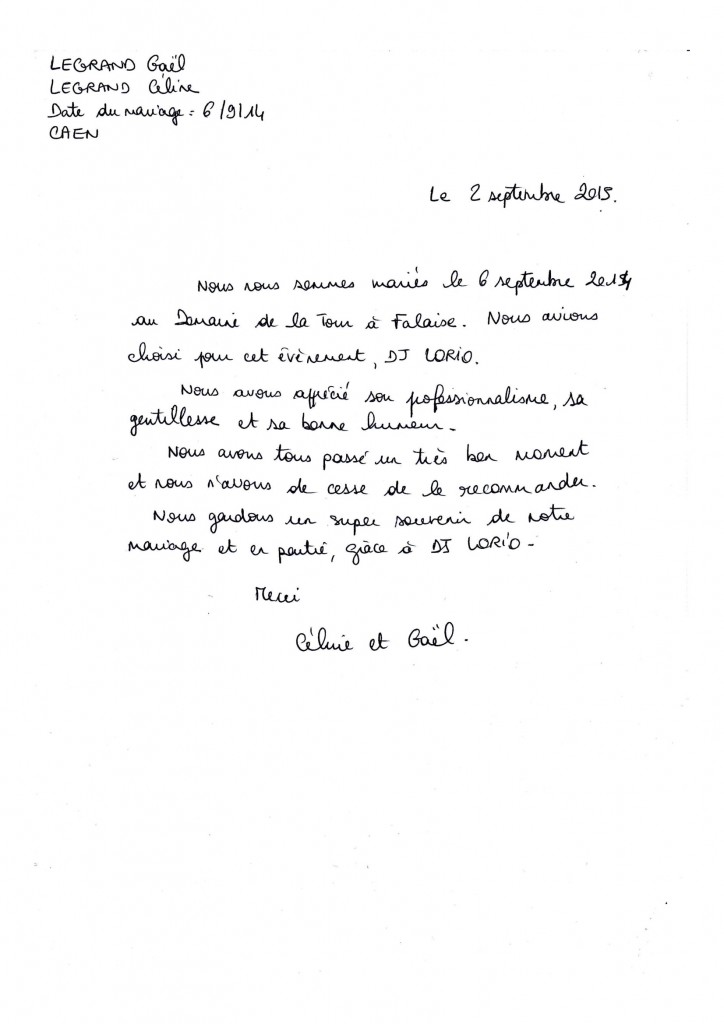 LEGRAND Gaël
LEGRAND Céline
Date du mariage : 6/9/14
CAEN
Le 2 septembre 2015.
Nous nous sommes mariés le 6 septembre 2014
au Domaine de la Tour à Falaise. Nous avions
choisi pour cet évènement, DJ LORIO.
Nous avons apprécié son professionnalisme, sa
gentillesse et sa bonne humeur.
Nous avons tous passé un très bon moment
et nous n'avons de cesse de le recommander.
Nous gardons un super souvenir de notre
mariage et en partie, grâce à DJ LORIO -
Merci
Céline et Gaël.